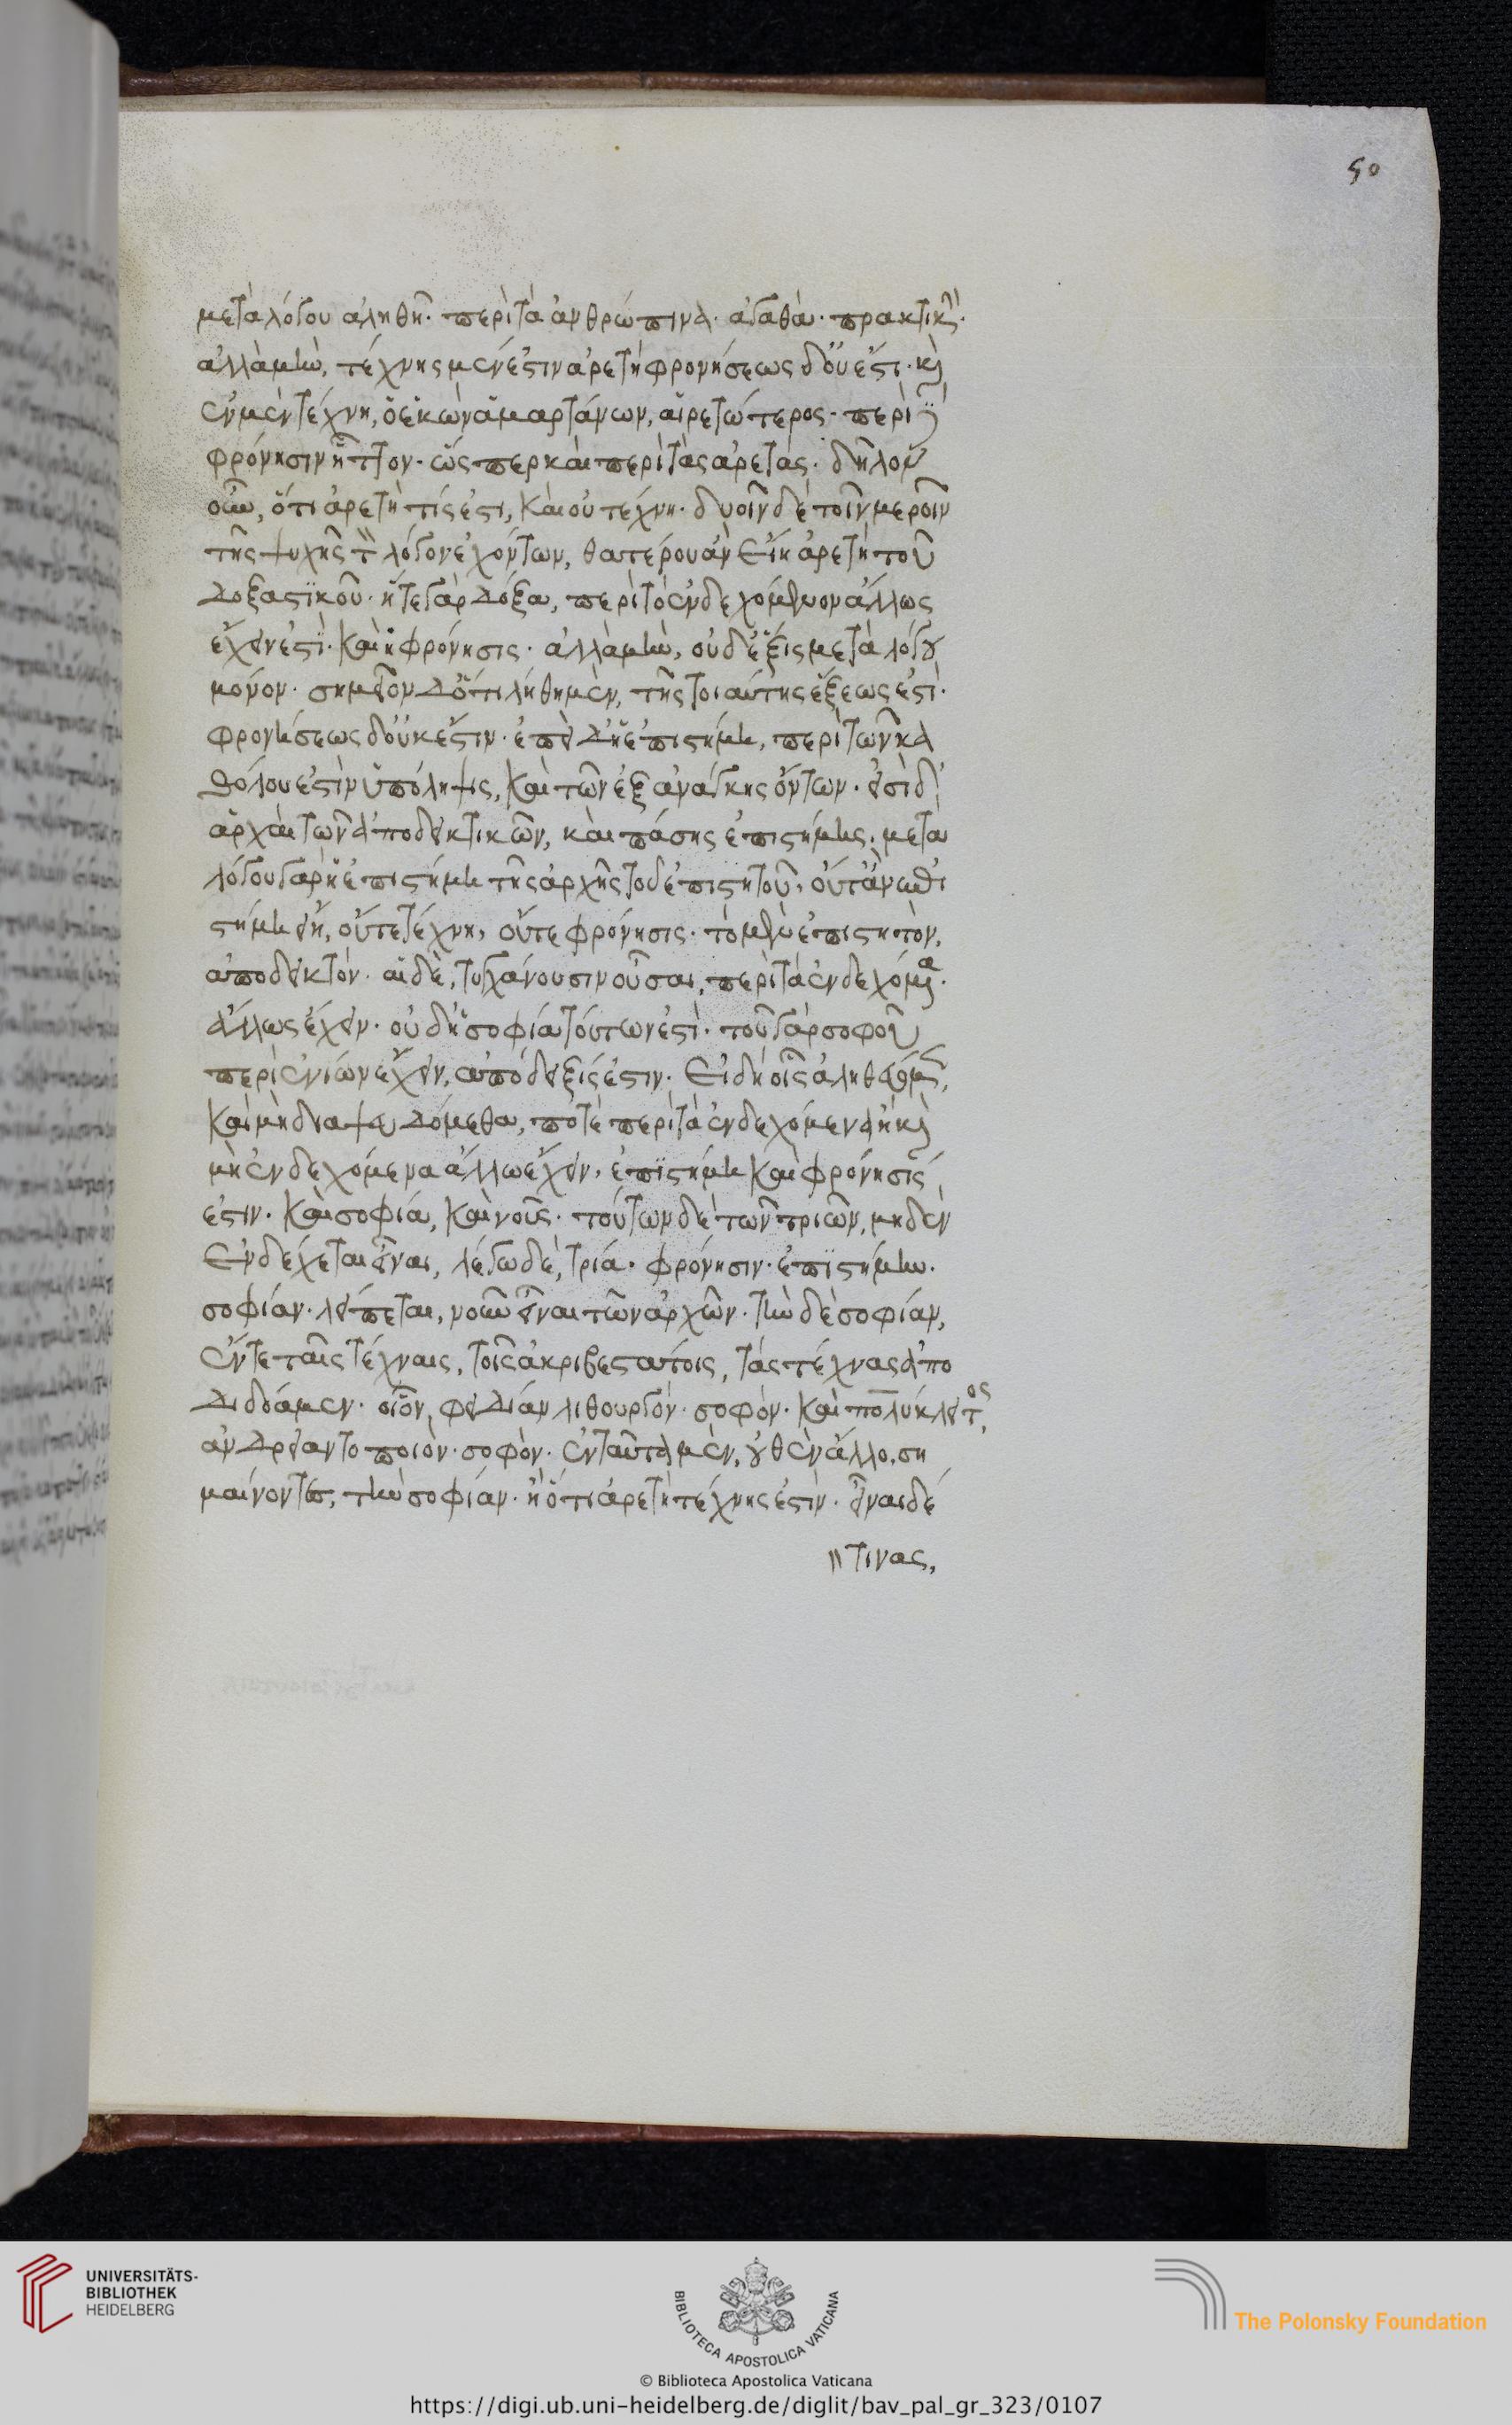 50
μετὰ λόγου ἀληθῆ· περὶ τὰ ἀνθρώπινα· ἀγαθὰ· πρακτικὴ·
ἀλλὰ μὴν, τέχνης μέν ἐστιν ἀρετὴ φρονήσεως δ' οὔ ἐστι· κὶ
ἐν μὲν τέχνη, ὁ ἑκὼν ἁμαρτάνων, αἱρετώτερος· περὶ
φρόνησιν ἧττον· ὥσπερ καὶ περὶ τὰς ἀρετάς· δῆλον
οὖν, ὅτι ἀρετή τίς ἐστι, καὶ οὐ τέχνη· δυοῖν δὲ τοῖν μεροῖν
τῆς ψυχῆς τ λόγον ἐχόντων, θατέρου ἂν εἴη ἀρετὴ τοῦ
δοξαστικοῦ· ἥ τε γὰρ δόξα, περὶ τὸ ἐνδεχόμενον ἄλλως
ἔχειν ἐστὶ· καὶ ἡ φρόνησις· ἀλλὰ μὴν, οὐδ' ἕξις μετὰ λόγου
μόνον· σημεῖον δ' ὅτι λήθη μὲν, τῆς τοιαύτης ἕξεως ἐστὶ·
φρονήσεως δ' οὐκ ἔστιν· ἐπεὶ δ' ἡ ἐπιστήμη, περὶ τῶν κα
θόλου ἐστὶν ὑπόληψις, καὶ τῶν ἐξ ἀνάγκης ὄντων· εἰσὶ δ'
ἀρχαὶ τῶν ἀποδεικτικῶν, καὶ πάσης ἐπιστήμης· μετὰ
λόγου γὰρ ἡ ἐπιστήμη τῆς ἀρχῆς τοδ ἐπιστητοῦ, οὔτ' ἂν ἐπι
στήμη εἴη, οὔτε τέχνη, οὔτε φρόνησις· τὸ μὲν ἐπιστητὸν,
ἀποδεικτόν· αἱ δὲ, τυγχάνουσιν οὖσαι, περὶ τὰ ἐνδεχόμενα·
ἄλλως ἔχειν· οὐ δὴ σοφία τούτων ἐστὶ· τοῦ γὰρ σοφοῦ
περὶ ἐνίων ἔχειν, ἀπόδειξίς ἐστιν· Εἰ δὴ οἷς ἀληθεύομεν,
καὶ μὴ διαψευδόμεθα, ποτὲ περὶ τὰ ἐνδεχόμενα ἢ κὶ
μὴ ἐνδεχόμενα ἄλλως ἔχειν, ἐπιστήμη καὶ φρόνησίς
ἐστιν· καὶ σοφία, καὶ νοῦς· τούτων δὲ τῶν τριῶν, μηδὲν
Ἐνδέχεται εἶναι, λέγω δὲ, τρία· φρόνησιν· ἐπιστήμην·
σοφίαν· λείπεται, νοῦν εἶναι τῶν ἀρχῶν· τὴν δὲ σοφίαν,
ἔν τε ταῖς τέχναις, τοῖς ἀκριβεστάτοις, τὰς τέχνας ἀπο
διδόαμεν· οἷον, φειδίαν λιθουργὸν· σοφὸν· καὶ πολύκλειτος,
ἀνδρειαντοποιὸν· σοφὸν· ἐνταῦτα μὲν, οὐθὲν ἄλλο, ση
μαίνοντες, τὴν σοφίαν· ἢ ὅτι ἀρετὴ τέχνης ἐστὶν· εἶναι δέ
τινας,
UNIVERSITÄTS-
BIBLIOTHEK
HEIDELBERG
BIBLIOTECA APOSTOLICA VATICANA
The Polonsky Foundation
© Biblioteca Apostolica Vaticana
https://digi.ub.uni-heidelberg.de/diglit/bav_pal_gr_323/0107